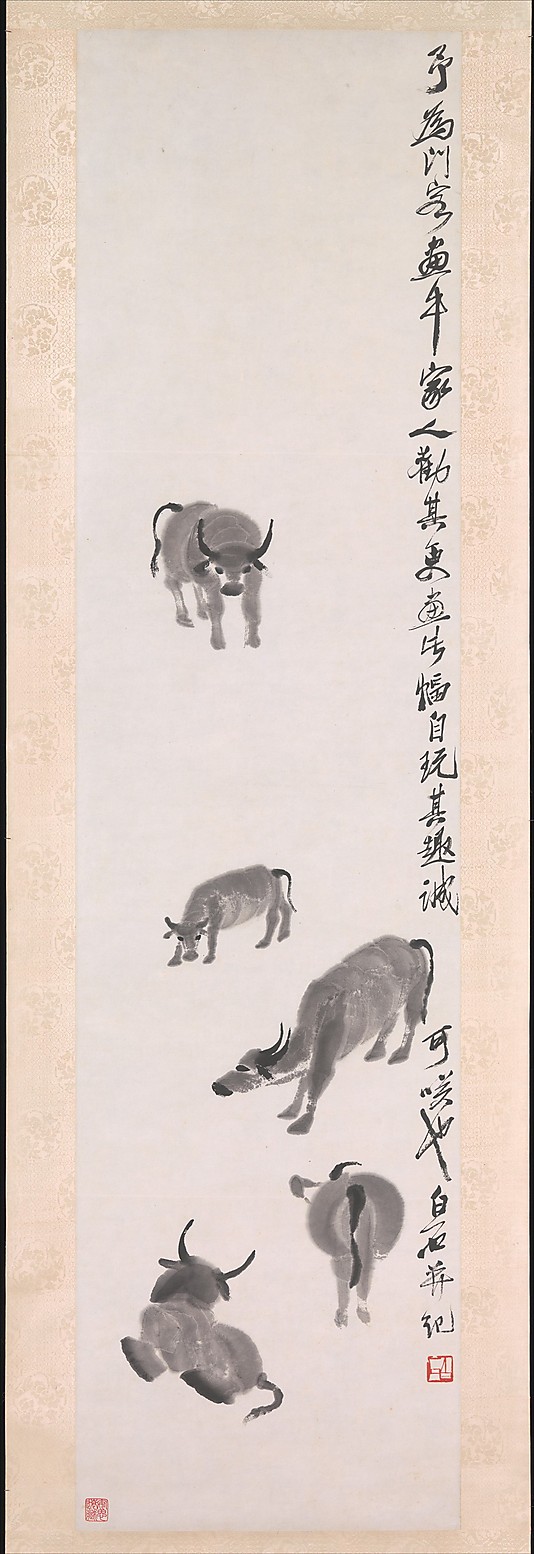 予為門客畫牛家人勸其更畫此幅自玩其趣誠可咲也白石并紀